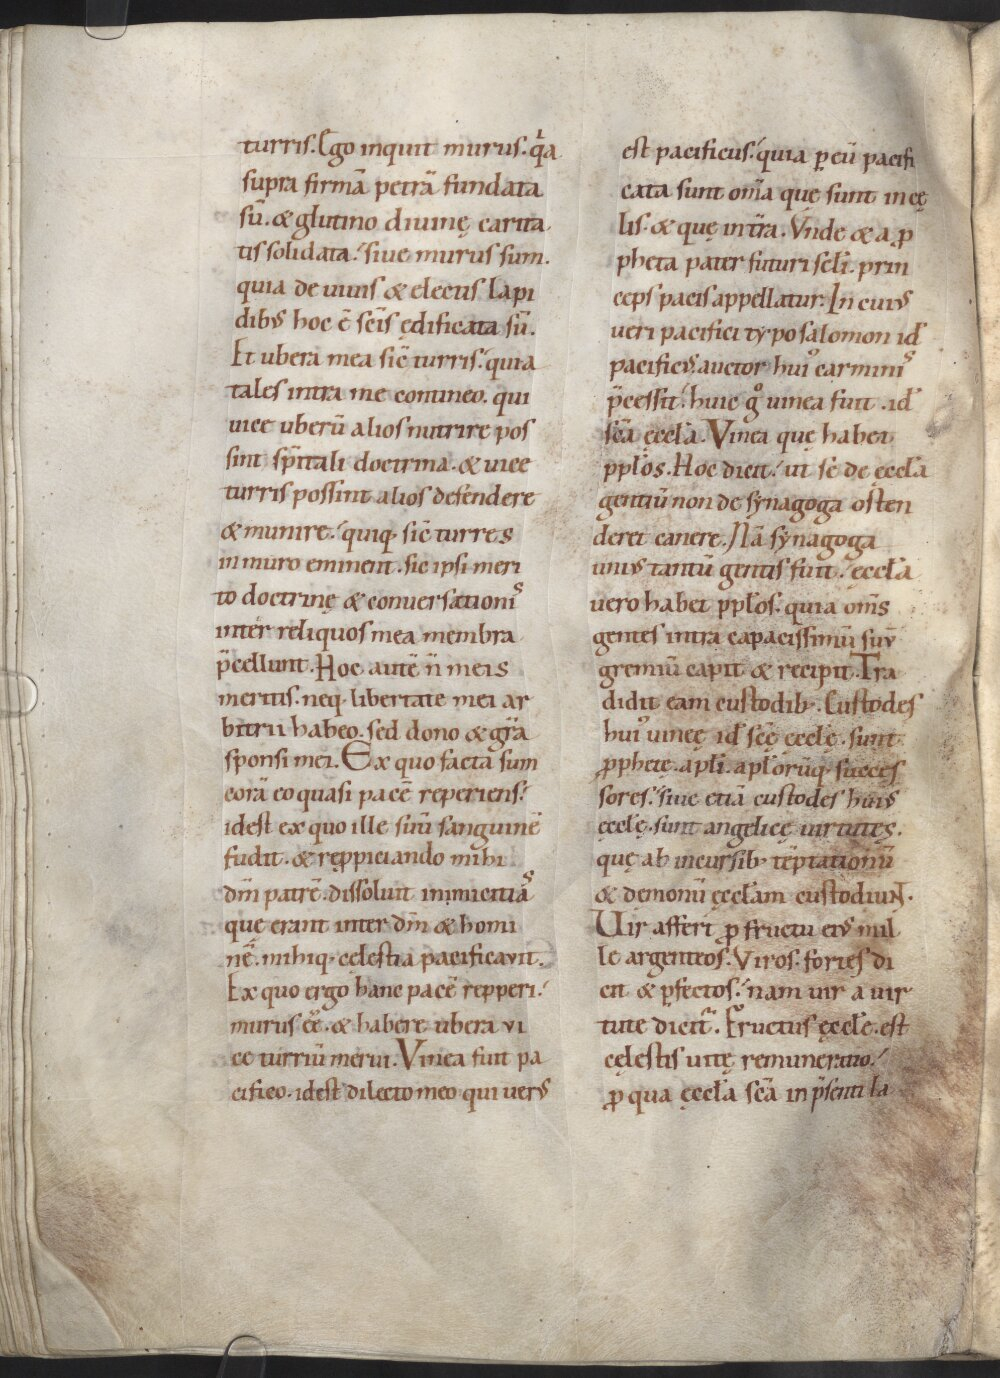 turris. Ego inquit murus. q̇a
supra firmā petrā fundata
sū. & glutino diuinę carita
tis solidata. siue murus sum.
quia de uiuis & electis lapi
dibꝰ hoc ē scīs ędificata sū.
Et ubera mea sic̄ turris. quia
tales intra me contineo. qui
uice uberū alios nutrire pos
sint spīritali doctrina. & uice
turris possint alios defendere
& munire. quiq; sic̄ turres
in muro eminent. sic ipsi meri
to doctrinę & conuersationiˢ
inter reliquos mea membra
p̄cellunt. Hoc autē n̄ meis
meritis. neq; libertate mei ar
bitrii habeo. sed dono & gr̄a
sponsi mei. Ex quo facta sum
corā eo quasi pacē reperiens.
idest ex quo ille suū sanguinē
fudit. & reppiciando mihi
dm̄ patrē. dissoluit inimicitiaˢ
que erant inter dm̄ & homi
nē. mihiq; cęlestia pacificauit.
Ex quo ergo hanc pacē repperi.
murus ēē. & habere ubera vi
ce turriū merui. Vinea fuit pa
cifico. idest dilecto meo qui verꝰ
est pacificus. quia ꝑ eū pacifi
cata sunt om̄a quę sunt in cę
lis. & quę in tr̄a. Vnde & a ꝓ
pheta pater futuri sc̄li. prin
ceps pacis appellatur. In cuiꝰ
ueri pacifici typo salomon id̄
pacificꝰ auctor huiꝰ carminiˢ
p̄cessit. huic gͦ uinea fuit. id̄
sc̄a ęccła. Vinea quę habet
ppłos. Hoc dicit. ut se de ęccła
gentiū non de synagoga osten
deret canere. Nā synagoga
uniꝰ tantū gentis fuit. ęccła
uero habet ppłos. quia om̄s
gentes intra capacissimū suū
gremiū capit & recipit. Tra
didit eam custodib; Custodes
huiꝰ uineę id̄ sc̄ę ęccłę. sunt
ꝓphetę. apłi. apłorūq; succęs
sores. siue etiā custodes huiꝰ
ęccłę. sunt angelicę uirtutęs.
quę ab incursib; tēptationū
& demonū ęccłam custodiuɴᴛ.
Uir affert ꝓ fructu eiꝰ mil
le argenteos. Viros. fortęs di
cit & ꝑfectos. nam uir a uir
tute dicit᷑. Fructus ęccłę. est
cęlestis uitę remuneratio.
ꝓ qua ęccła sc̄a in p̄senti la